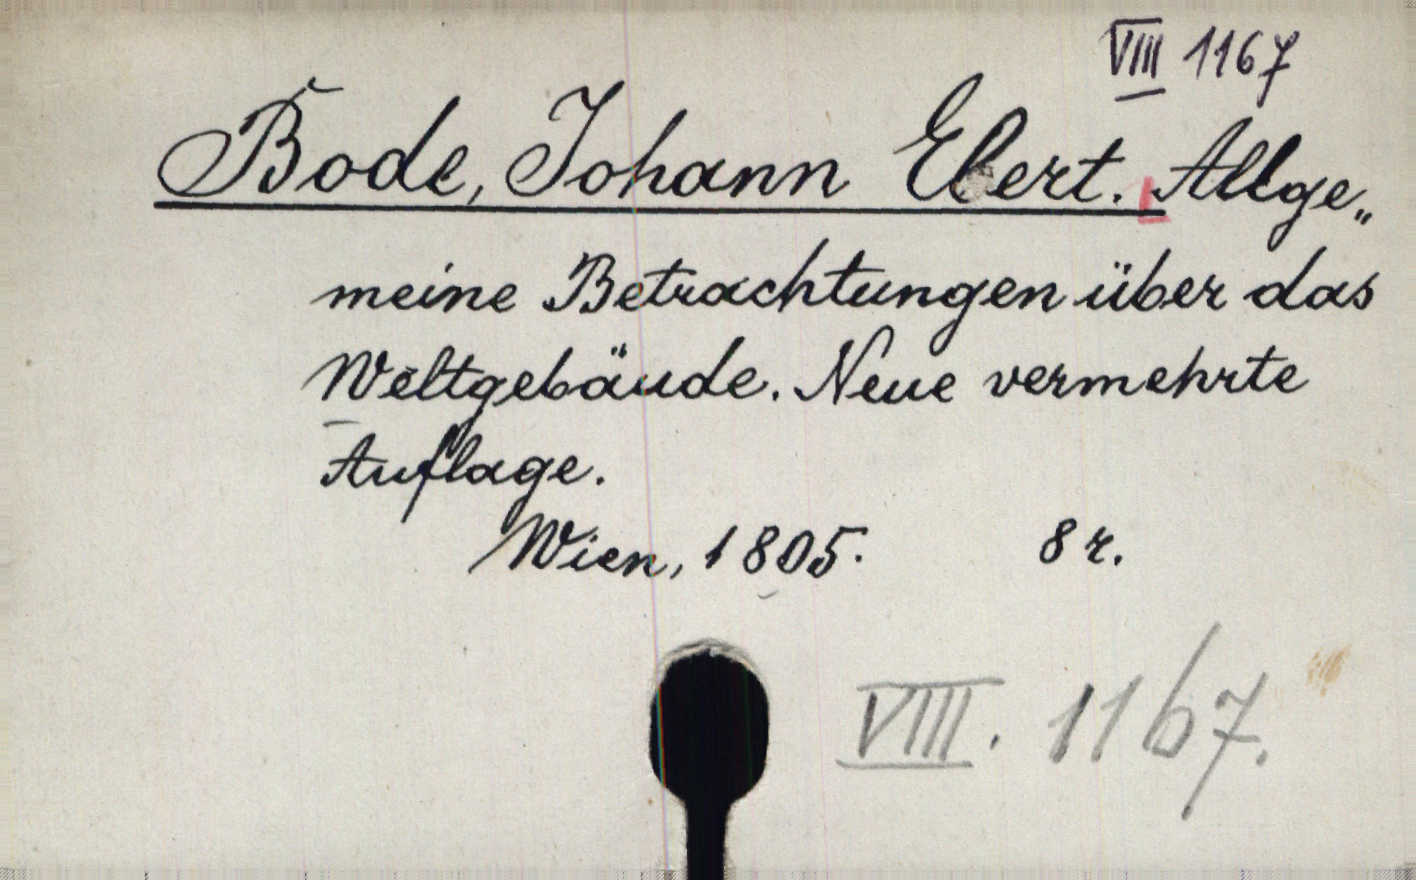 VIIII 1167
Bode, Johann Elert. Allge„
meine Betrachtungen über das
Weltgebäude. Neue vermehrte
Auflage.
Wien, 1805. 8 r.
VIIII. 1167.